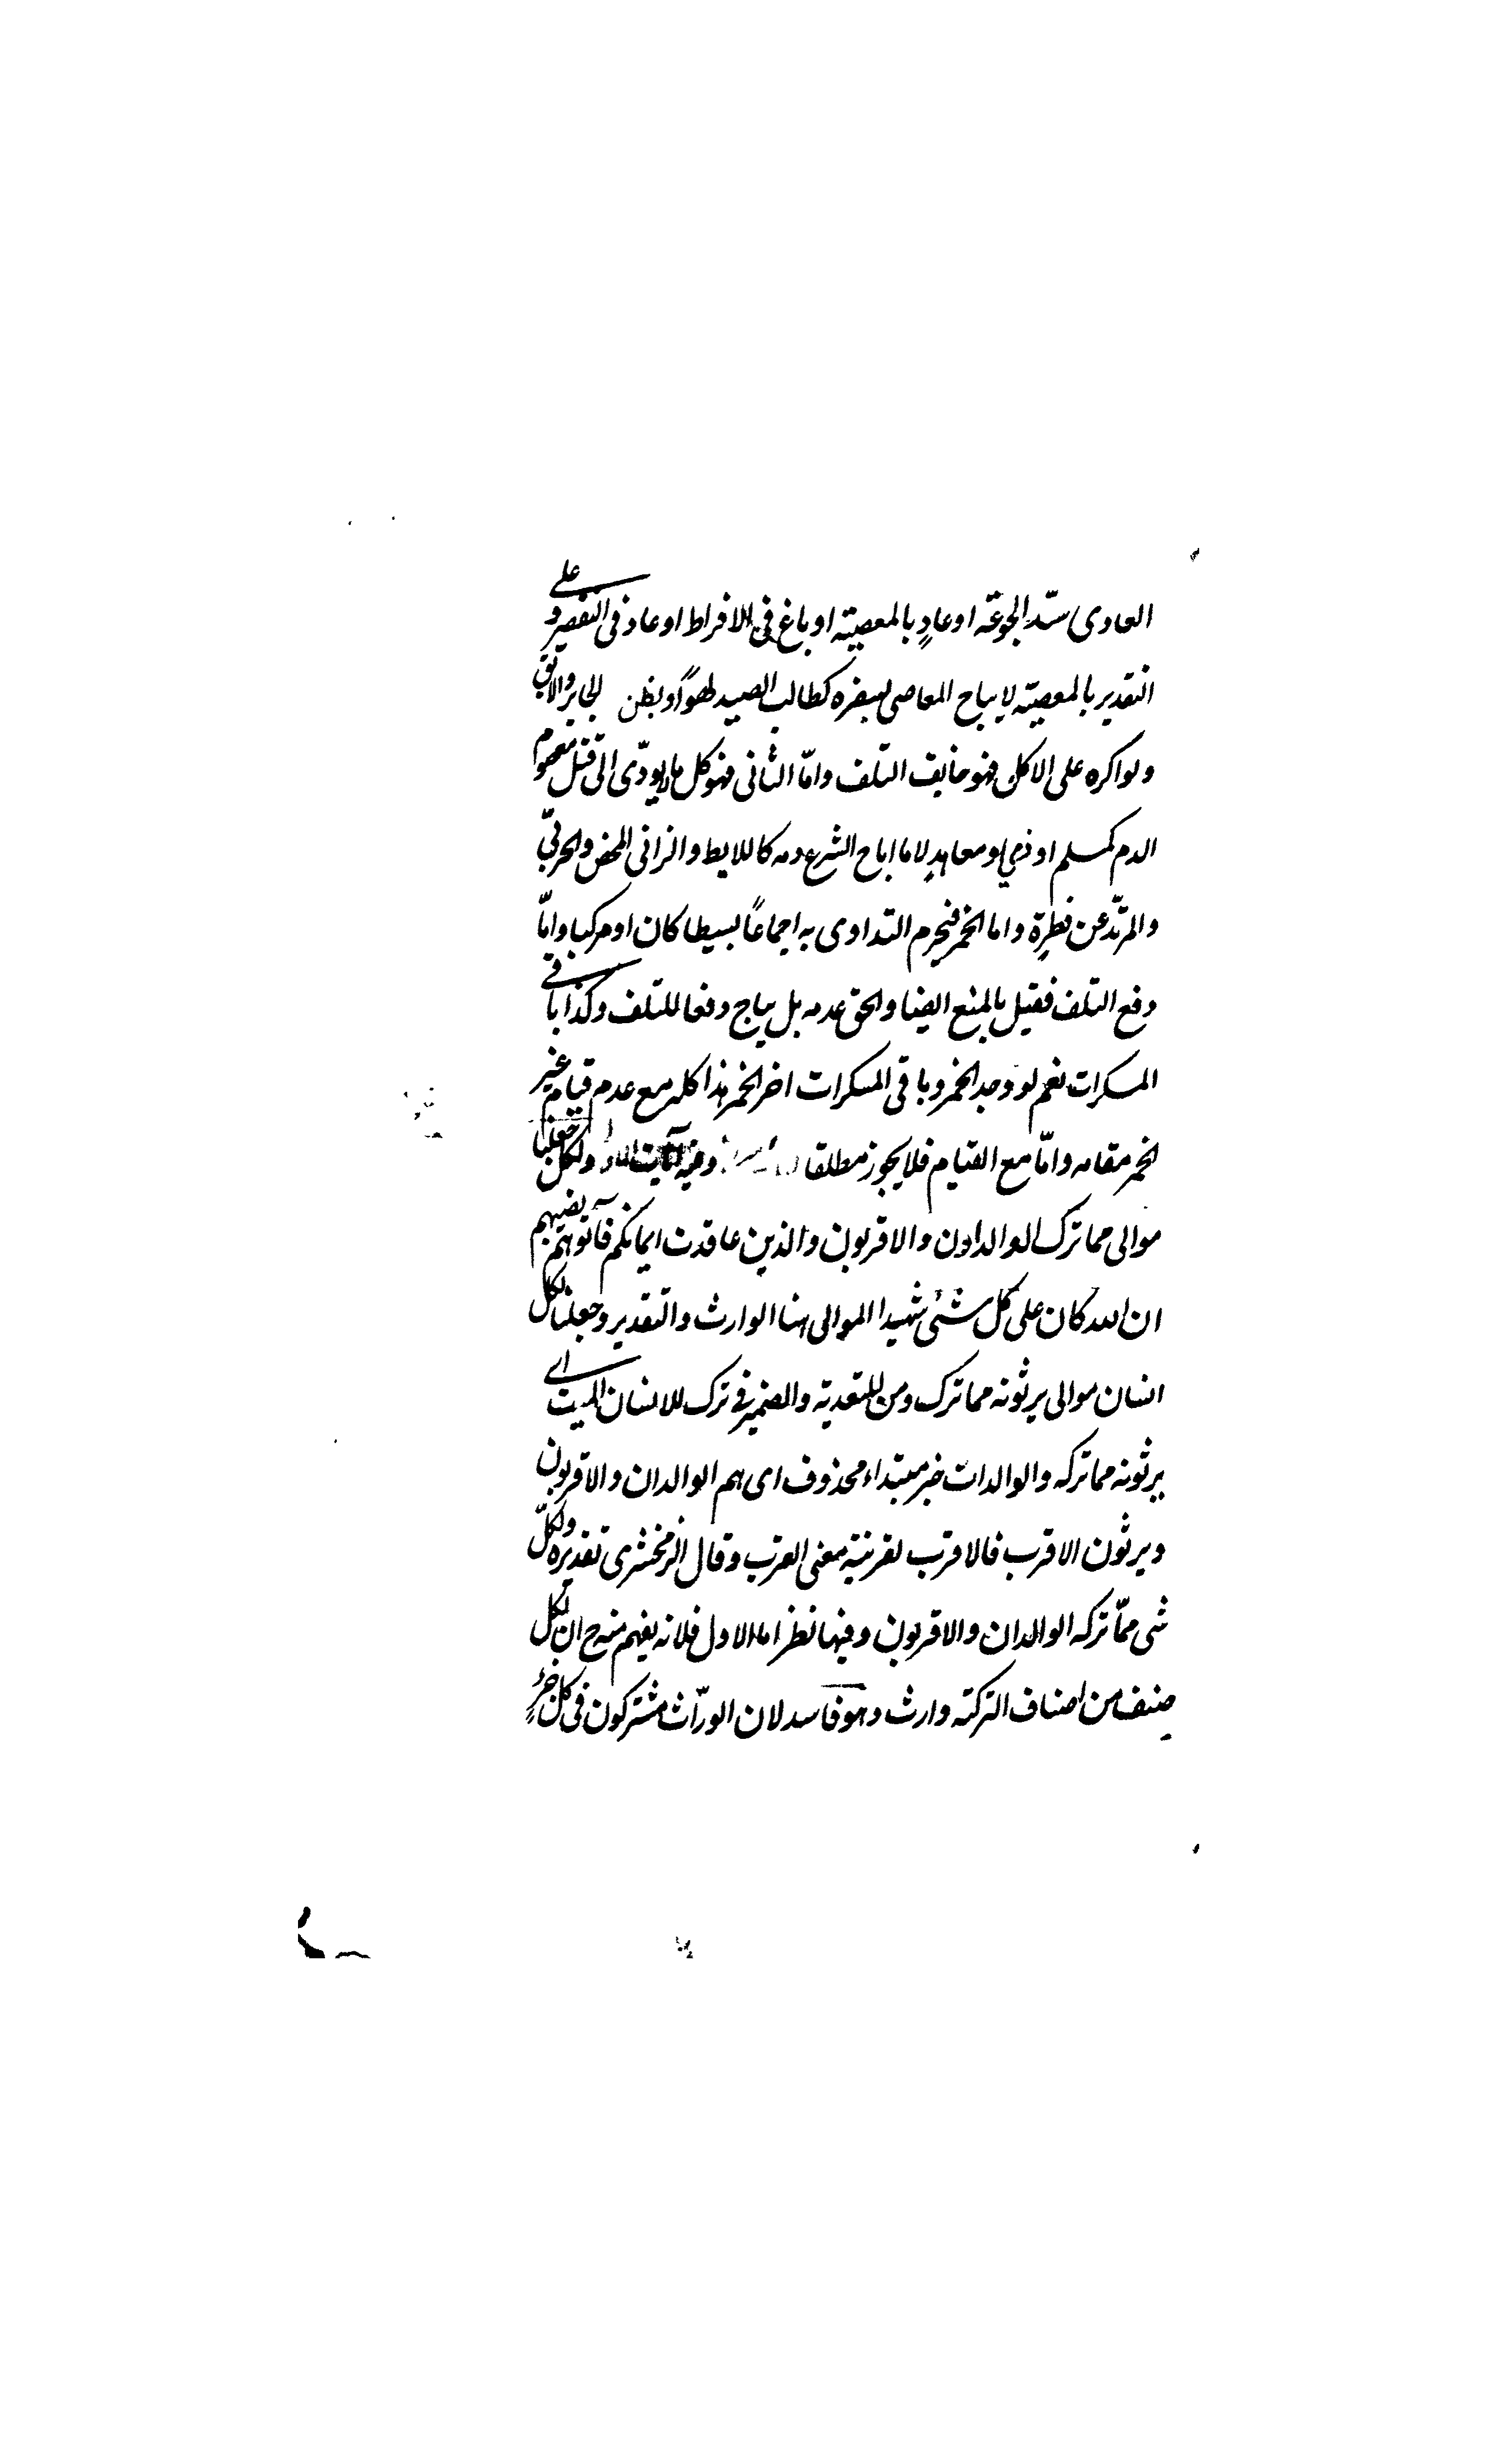 العادى سدّ الجوعة او عادٍ بالمعصية او باغ فى الافراط او عاد فى التقصير و على
التقدير بالمعصية لا يباح للعاصى بسفره كطالب الصيد لهواً وبطر الجاير والابق
ولو اكره على الاكل فهو خايف التلف وامّا الثانى فهو كل ما لا يودّى الى قتل معصوم
الدم كمسلم او ذمي او معاهدٍ لا ما اباح الشرع دمه كاللايط والزانى المحض والحربيّ
والمرتدّ عن فطرة واما الخمر فيحرم التداوى به اجماعاً بسيطا كان او مركبا وامّا
دفع التلف فقيل بالمنع ايضا والحق عدمه بل يباح دفعا للتلف وكذا باقى
المسكرات نعم لو وجد الخمر وباقى المسكرات اخر الخمر هذا كله مع عدم قيام غير
الخمر مقامه وامّا مع القيام فلا يجوز مطلقا وفيه آيات ولكل جعلنا
موالى مما ترك الوالدان والاقربون والذين عاقدت ايمانكم فآتوهم نصيبهم
ان الله كان على كل شئ شهيدا الموالى هنا الوارث والتقدير وجعلنا لكل
انسان موالى يرثونه مما ترك ومن للتعدية والضمير في ترك للانسان الميت اى
يرثونه مما تركه والوالدات خبر مبتداء محذوف اى هم الوالدان والاقربون
ويرثون الاقرب فالاقرب لقرينة معنى القرب وقال الزمخشرى تقديره ولكلّ
شى ممّا تركه الوالدان والاقربون وفيها نظر اما الاول فلانه يفهم منه ح ان لكل
صنف من اصناف التركة وارث وهو فاسد لان الورّاث مشتركون فى كل جزءٍ